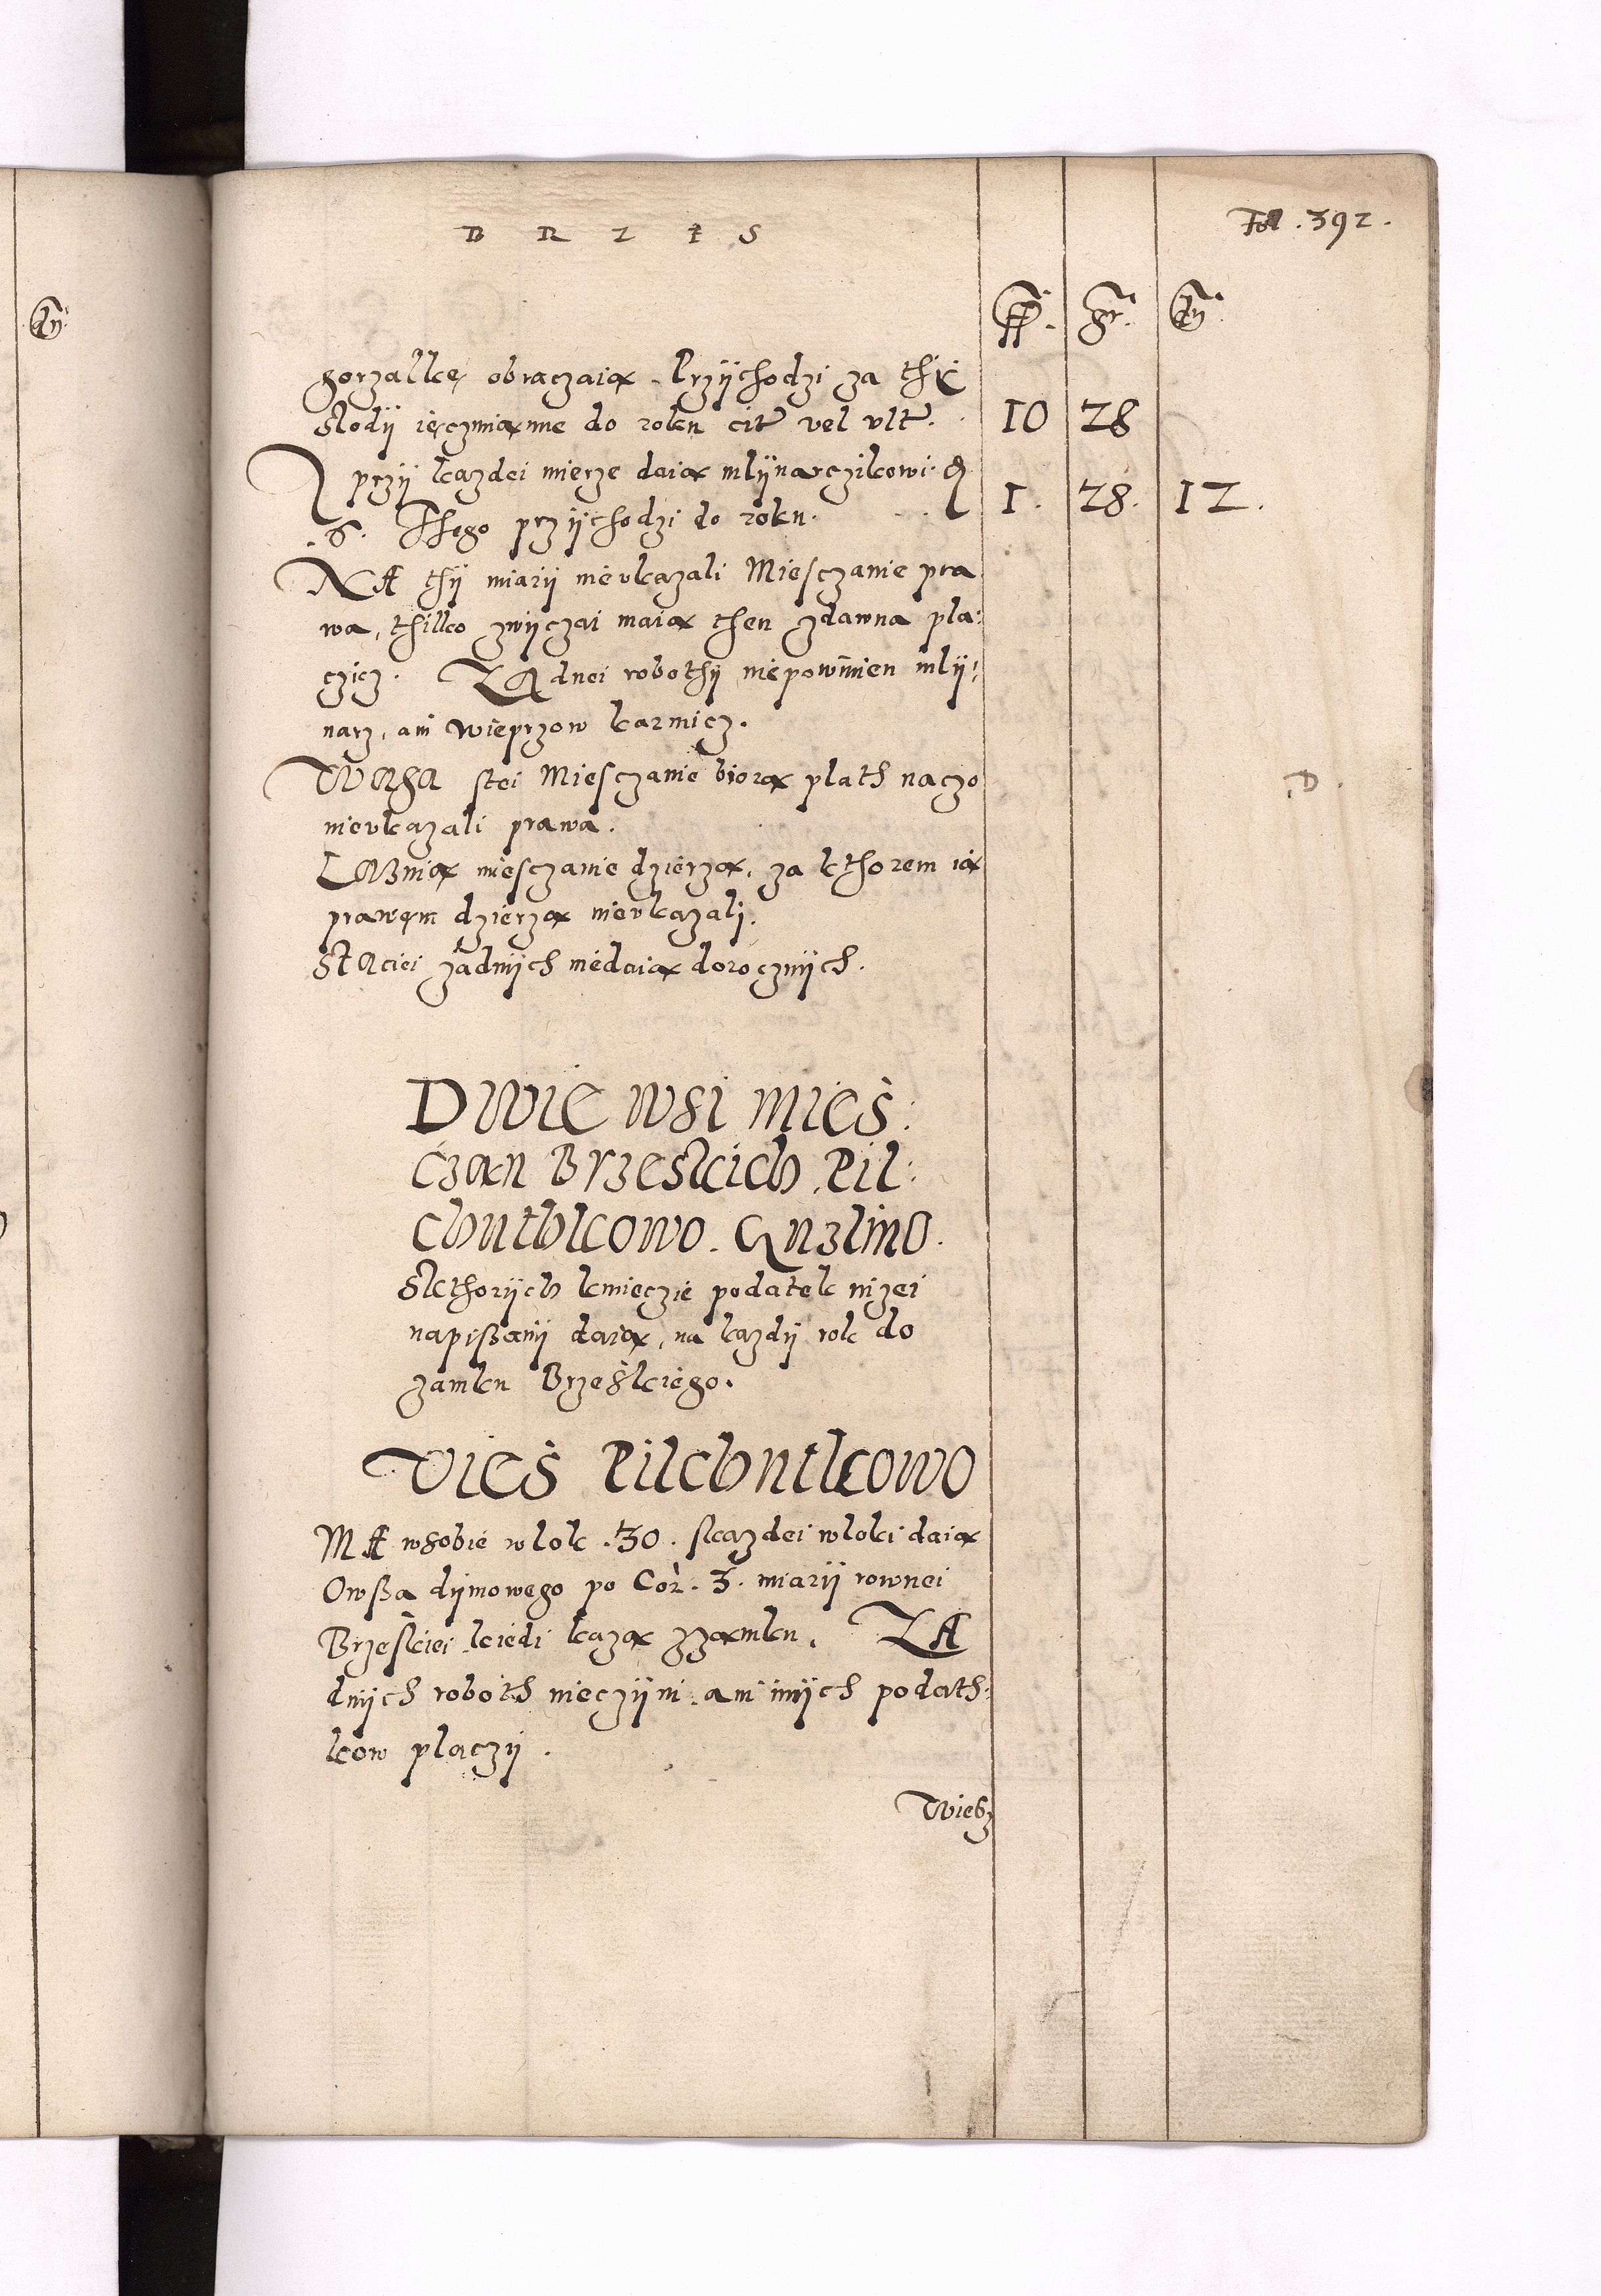 B R Z E S
Fol. 392.
ff. gr. dn
dn
gorzalkę obraczaią. Przÿchodzi za thÿ
slodÿ ięczmiąnne do roku cit vel vlt. 10 28
I przÿ kazdei mierze daią mlÿnarczikowi d
.6. Thego przÿchodzi do roku. 1. 28. 12.
NA thÿ miarÿ nieukazali Miesczanie pra
wa, thilko zwÿczai maią then zdawna pla:
czicz. ZAdnei robothÿ niepowinnien mlÿ:
narz, ani wieprzow karmicz.
WAga stei Miesczanie biorą plath naczo
nieukazali prawa.
D.
Laznią miesczanie dzierzą, za kthorem ią
prawem dzierzą nieukazali.
StAciei żadnÿch niedaią dorocznÿch.
Dwie wsi mies:
czan Brzeskich Pil:
chuthkowo. Guzlino.
Skthorÿch kmieczie podatek nizei
napißanÿ daią, na kazdÿ rok do
zamku Brzeskiego.
Wieś Pilchutkowo
MA wsobie wlok .30. skazdei wloki daią
Owßa dÿmowego po Cor. 3. miarÿ rownei
Brzeskiei kiedi każą zzamku. ZA
dnÿch roboth nieczÿni ani innÿch podath:
kow placzÿ.
Wiesz